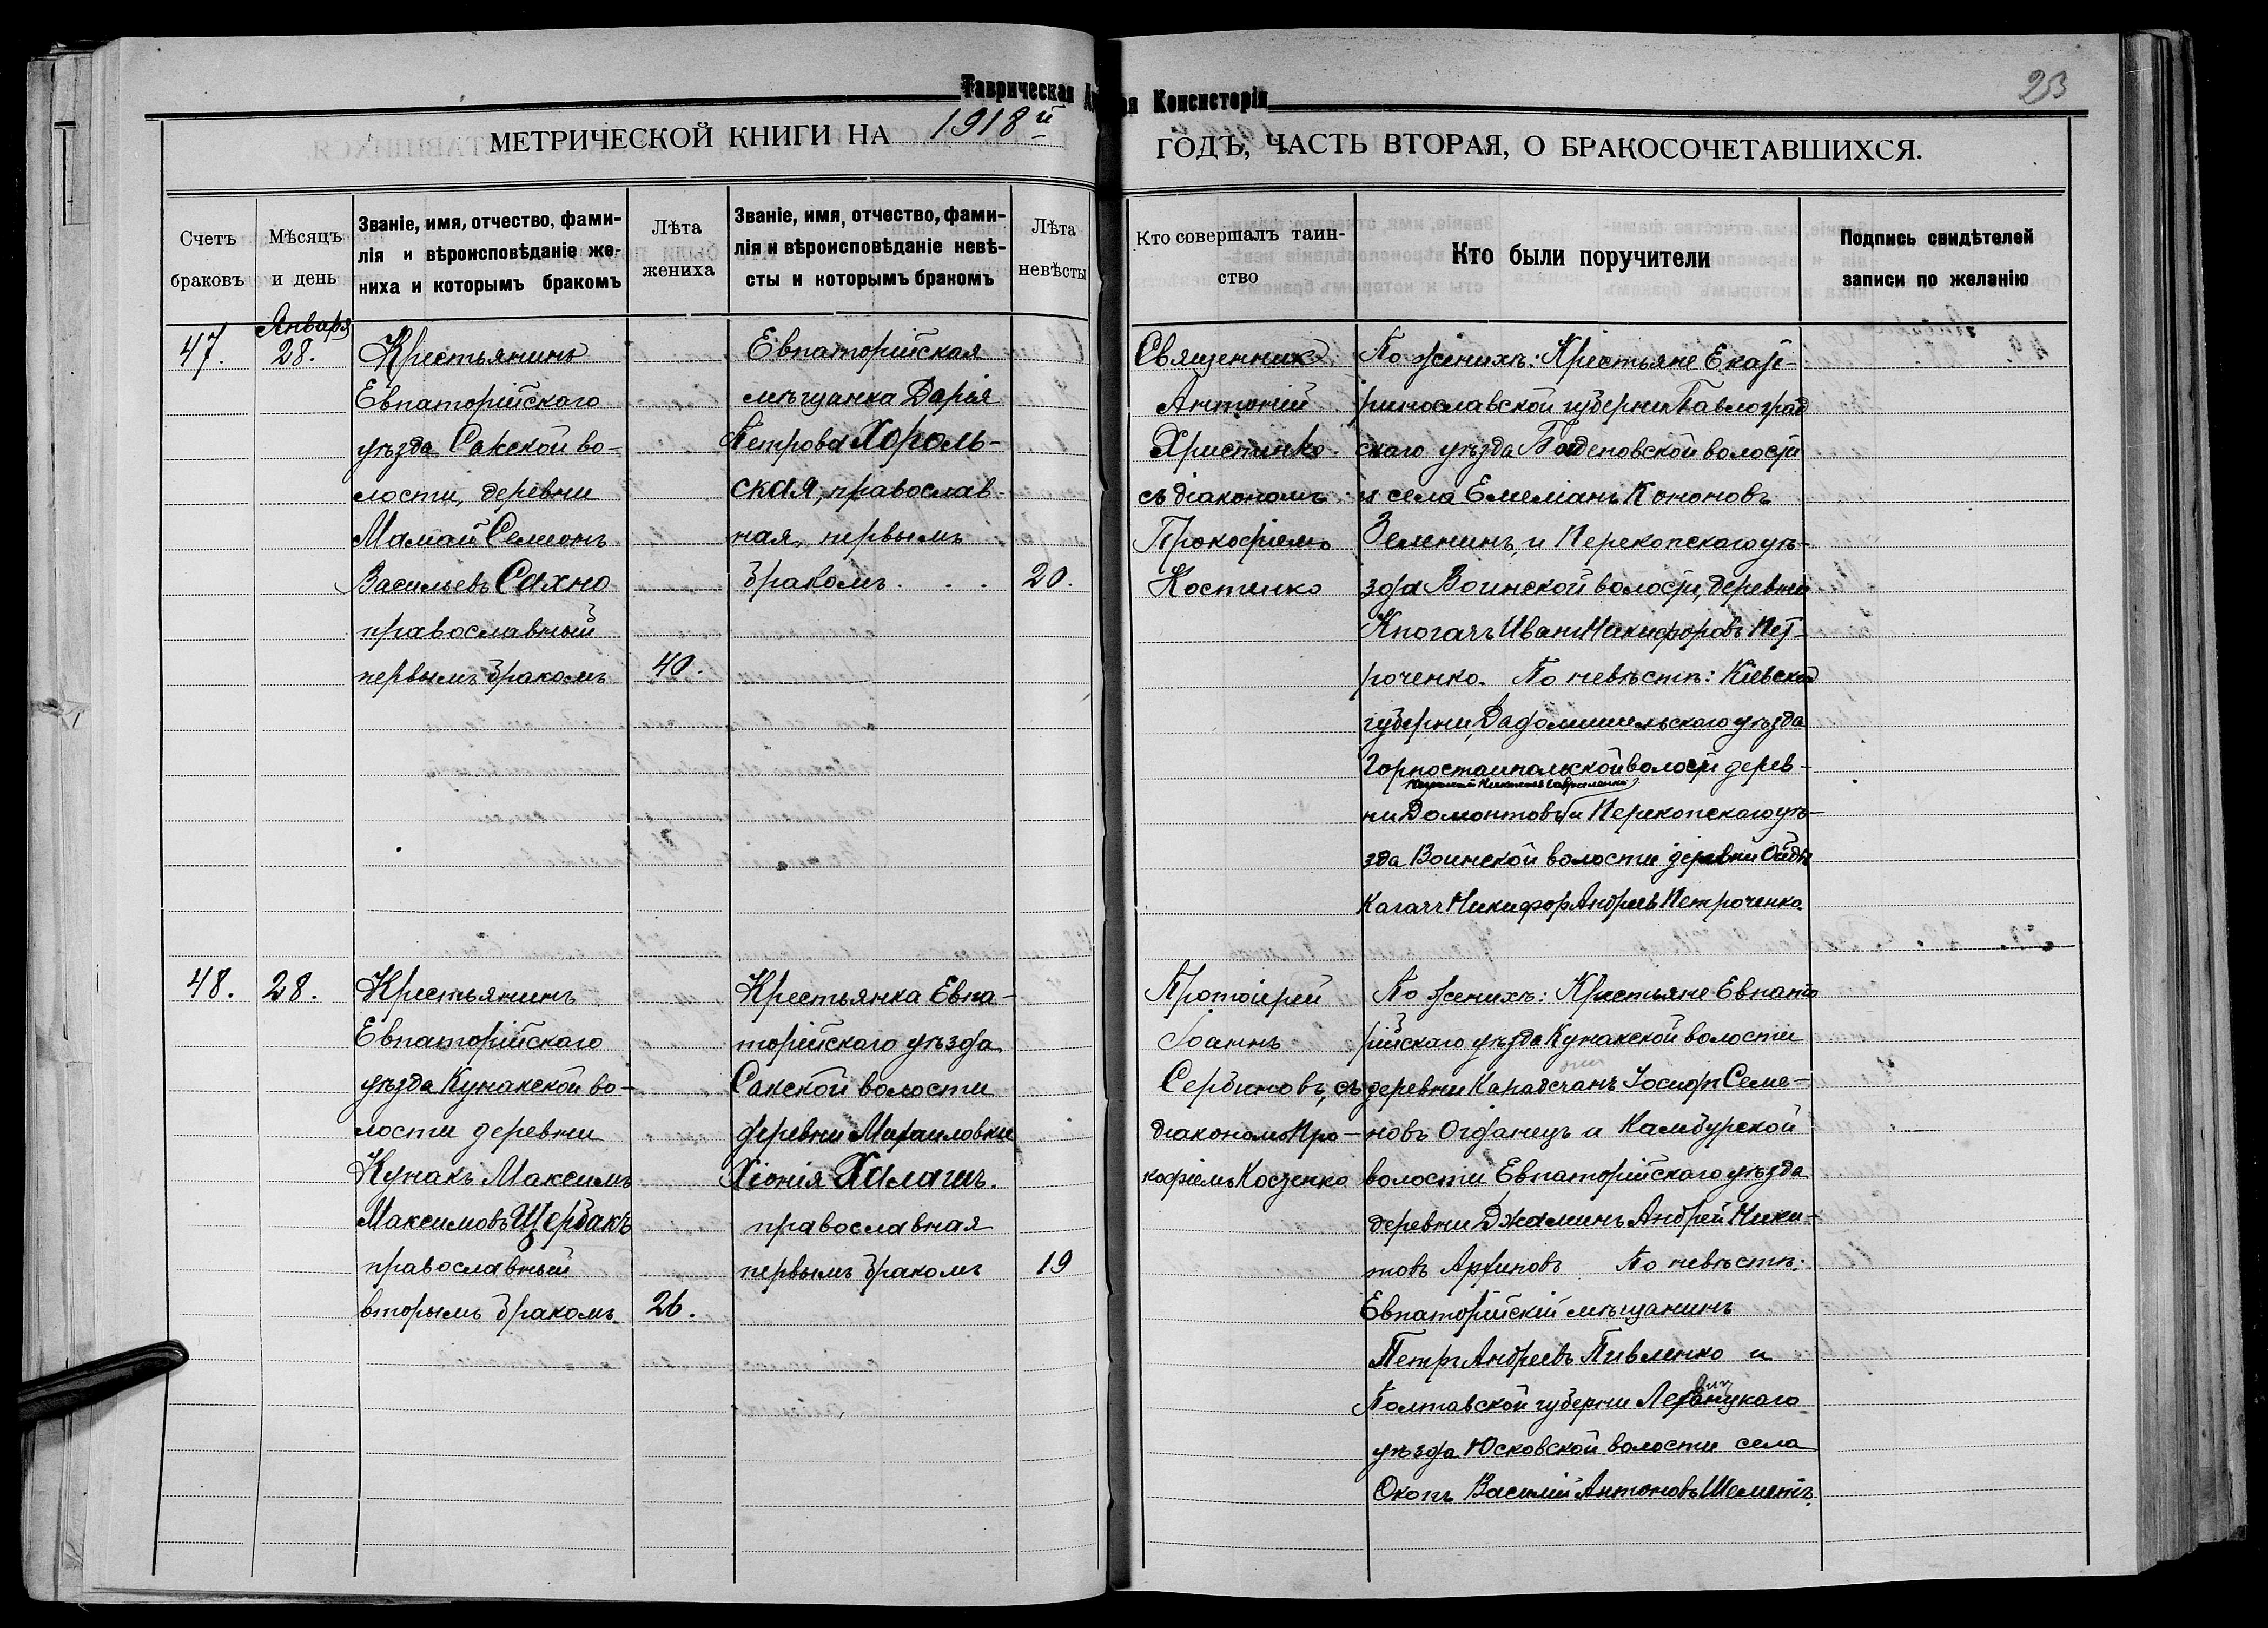 Таврическая
ая Консисторія
23
МЕТРИЧЕСКОЙ КНИГИ НА 1918й
ГОДЪ, ЧАСТЬ ВТОРАЯ, О БРАКОСОЧЕТАВШИХСЯ.
Счетъ
браковъ
Мѣсяцъ
и день
Званіе, имя, отчество, фами-
лія и вѣроисповѣданіе же-
ниха и которымъ бракомъ
Лѣта
жениха
Званіе, имя, отчество, фами-
лія и вѣроисповѣданіе невѣ-
сты и которымъ бракомъ
Лѣта
невѣсты
Кто совершалъ таин-
ство
Кто были поручители
Подпись свидѣтелей
записи по желанію
47.
Января
28.
Крестьянинъ
Евпаторійского
уѣзда Сакской во-
лости, деревни
Мамай Семіонъ
Васильевъ Сахно
православный
первымъ бракомъ
40.
Евпаторійская
мѣщанка Дарія
Петрова Хороль-
ская, православ-
ная, первымъ
бракомъ
20.
Священникъ
Антоній
Христенко
съ діакономъ
Прокофіемъ
Костенко
По женихѣ: Крестьяне Екате-
ринославской губерни Павлоград
скаго уѣзда волости
и села Емеліанъ Кононовъ
Зеленинъ, и Перекопскаго уѣ-
зда Воинской волости, деревни
Иванъ Никифоровъ Пет-
роченко. По невѣстѣ: Кіевской
губерни, уѣзда
Горностаипольской волости дерев-
ни Домонтовъ и Перекопскаго уѣ-
зда Воинской волости деревни
Никифор Андреевъ Петроченко.
48.
28.
Крестьянинъ
Евпаторійского
уѣзда Кунакской во-
лости деревни
Кунакъ Максимъ
Максимовъ Щербакъ
православный
вторымъ бракомъ.
26.
Крестьянка Евпа-
торійского уѣзда
Сакской волости
деревни Михаиловки
Хіонія Халагшъ.
православная
первымъ бракомъ
19
Протоіерей
Іоаннъ
Сербиновъ, съ
діакономъ Про-
кофіемъ Костенко
По женихѣ: Крестьяне Евпато
рійскаго уѣзда Кунакской волости
деревни Іосифъ Семе-
новъ и Камбурской
волости Евпаторійскаго уѣзда
деревни Джаминъ Андрей Ники-
товъ По невѣстѣ:
Евпаторійскій мѣщанинъ
Петръ Андреевъ Пивленко и
Полтавской губерни
уѣзда Юсковской волости села
Окопъ Василій Антоновъ Шеметъ.